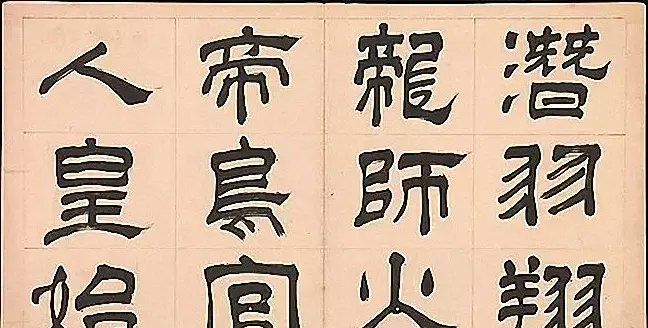 潛羽翔
龍師火
帝鳥官
人皇始